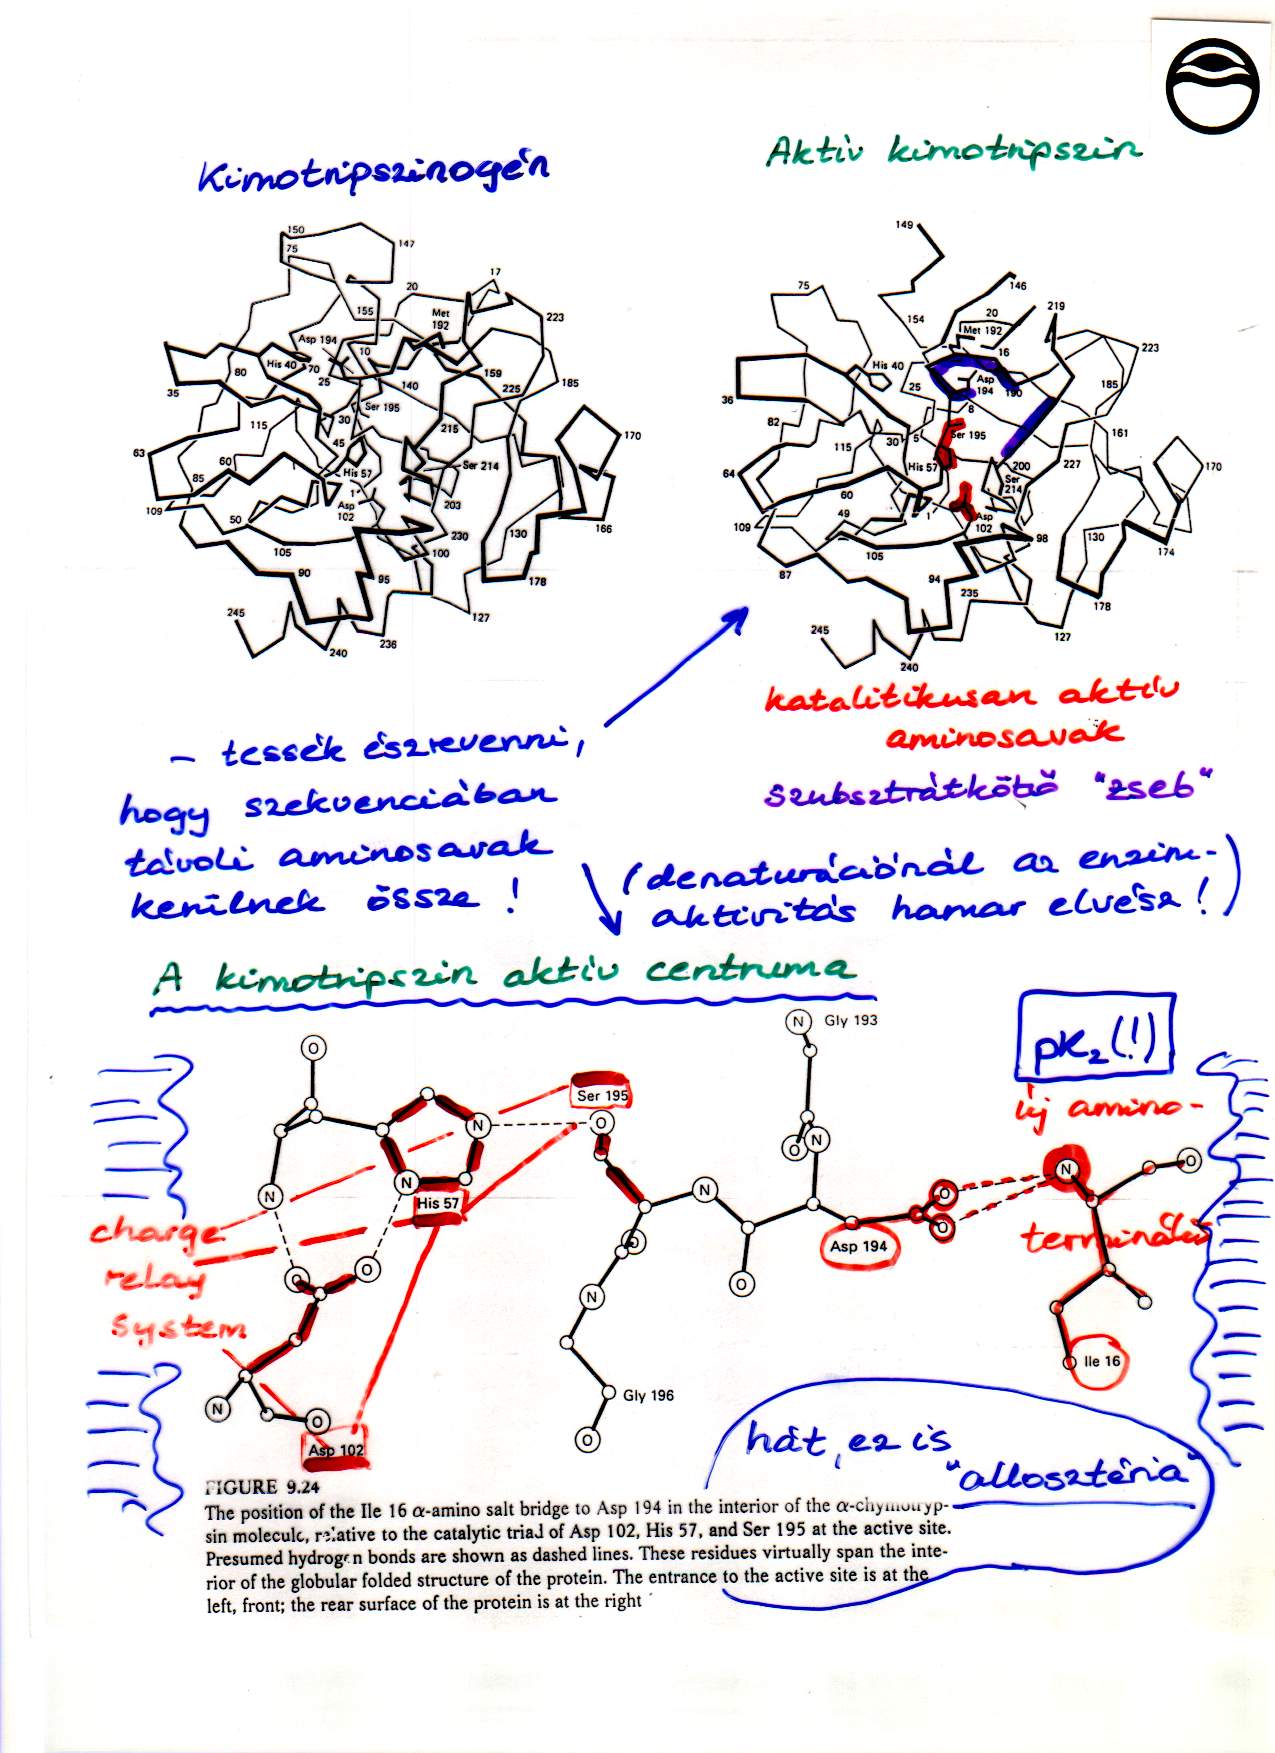 Kimotripszinogén
Aktív kimotripszin
150
75
147
17
20
155
Met
192
223
Asp 194
10
His 40
70
80
25
140
159
225
185
35
Ser 195
30
115
215
170
45
63
60
His 57
Ser 214
85
1
Asp
102
203
109
50
166
230
130
105
100
90
95
178
245
127
236
240
149
146
75
20
219
154
Met 192
16
223
His 40
Asp
194
25
190
185
36
8
82
5
Ser 195
161
115
30
His 57
200
227
170
64
Ser
214
60
49
1
Asp
102
109
98
130
105
174
87
94
235
178
245
127
240
katalitikusan aktív
aminosavak
szubsztrátkötő "zseb"
– tessék észrevenni,
hogy szekvenciában
távoli aminosavak
kerülnek össze !
(denaturációnál az enzim-
aktivitás hamar elvész!)
A kimotripszin aktív centruma
pK₂(!)
új amino-
terminális
N
Gly 193
O
Ser 195
N
O
N
O
N
O
N
N
N
O
His 57
O
O
Asp 194
O
O
O
O
N
charge
relay
system
Ile 16
N
O
Gly 196
O
Asp 102
hát, ez is
"allosztéria"
FIGURE 9.24
The position of the Ile 16 α-amino salt bridge to Asp 194 in the interior of the α-chymotryp-
sin molecule, relative to the catalytic triad of Asp 102, His 57, and Ser 195 at the active site.
Presumed hydrogen bonds are shown as dashed lines. These residues virtually span the inte-
rior of the globular folded structure of the protein. The entrance to the active site is at the
left, front; the rear surface of the protein is at the right